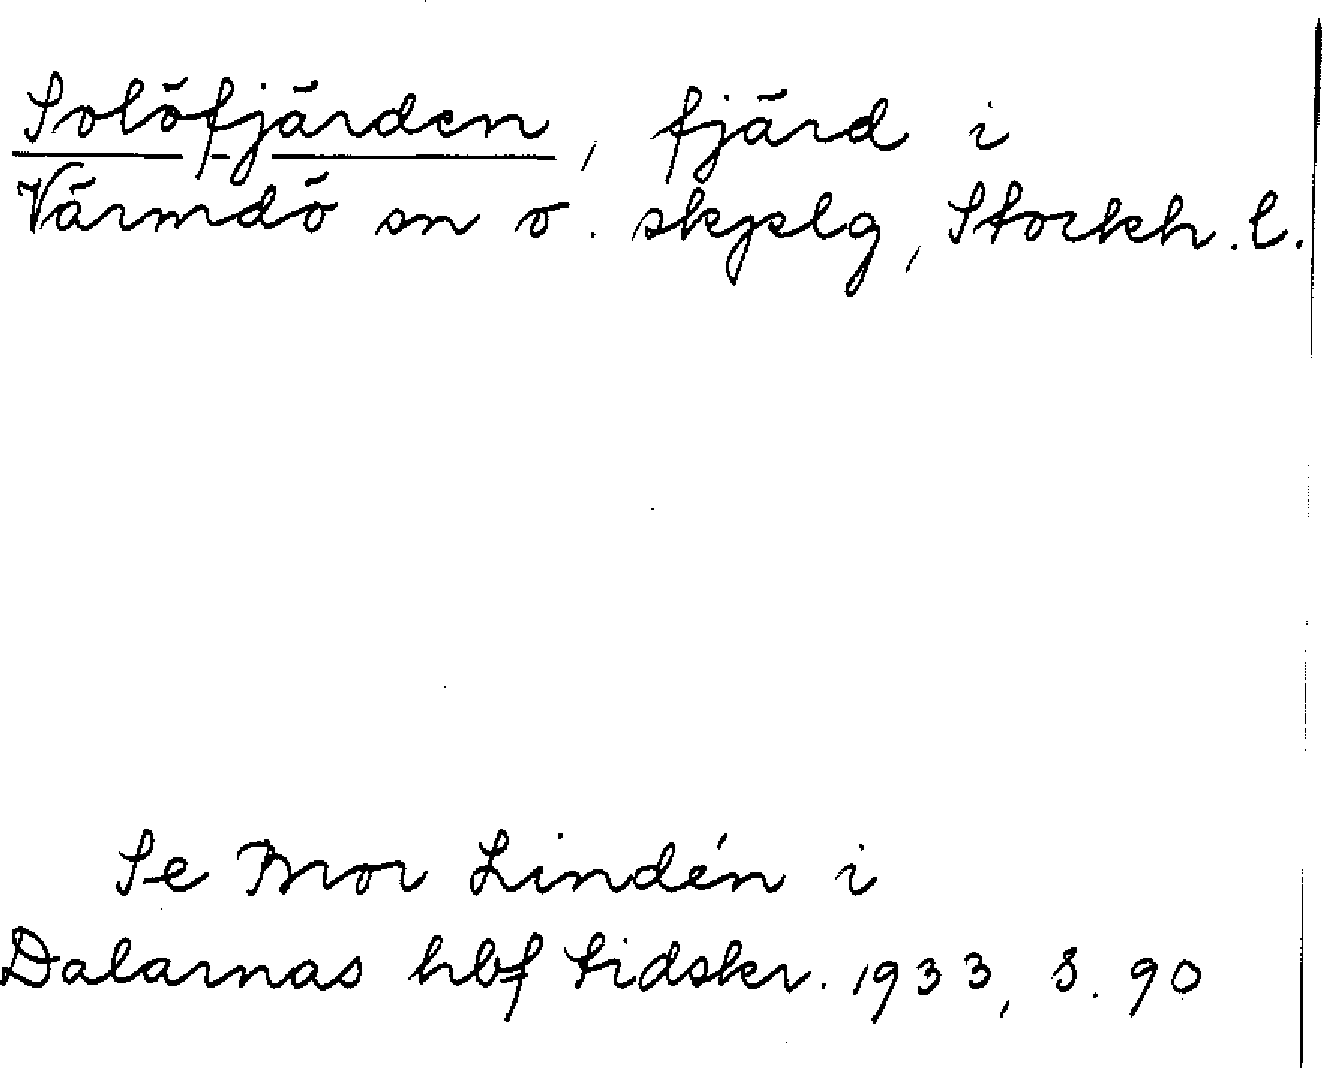 Solöfjärden, fjärd i
Värmdö sn o. skgslg, Stockh. l.
Se Bror Lindén i
Dalarnas hbf tidskr. 1933, s. 90